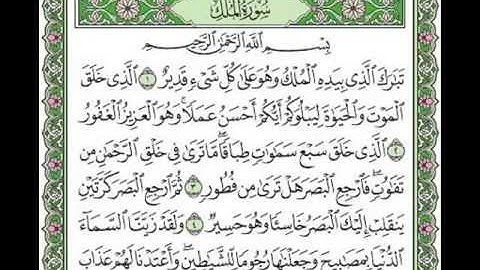 سُورَةُ الْمُلْكِ
بِسْمِ ٱللَّهِ ٱلرَّحْمَٰنِ ٱلرَّحِيمِ
تَبَٰرَكَ ٱلَّذِى بِيَدِهِ ٱلْمُلْكُ وَهُوَ عَلَىٰ كُلِّ شَىْءٍ قَدِيرٌ ١ ٱلَّذِى خَلَقَ
ٱلْمَوْتَ وَٱلْحَيَوٰةَ لِيَبْلُوَكُمْ أَيُّكُمْ أَحْسَنُ عَمَلًا وَهُوَ ٱلْعَزِيزُ ٱلْغَفُورُ
٢ ٱلَّذِى خَلَقَ سَبْعَ سَمَٰوَٰتٍ طِبَاقًا ۖ مَّا تَرَىٰ فِى خَلْقِ ٱلرَّحْمَٰنِ مِن
تَفَٰوُتٍ ۖ فَٱرْجِعِ ٱلْبَصَرَ هَلْ تَرَىٰ مِن فُطُورٍ ٣ ثُمَّ ٱرْجِعِ ٱلْبَصَرَ كَرَّتَيْنِ
يَنقَلِبْ إِلَيْكَ ٱلْبَصَرُ خَاسِئًا وَهُوَ حَسِيرٌ ٤ وَلَقَدْ زَيَّنَّا ٱلسَّمَآءَ
ٱلدُّنْيَا بِمَصَٰبِيحَ وَجَعَلْنَٰهَا رُجُومًا لِّلشَّيَٰطِينِ ۖ وَأَعْتَدْنَا لَهُمْ عَذَابَ